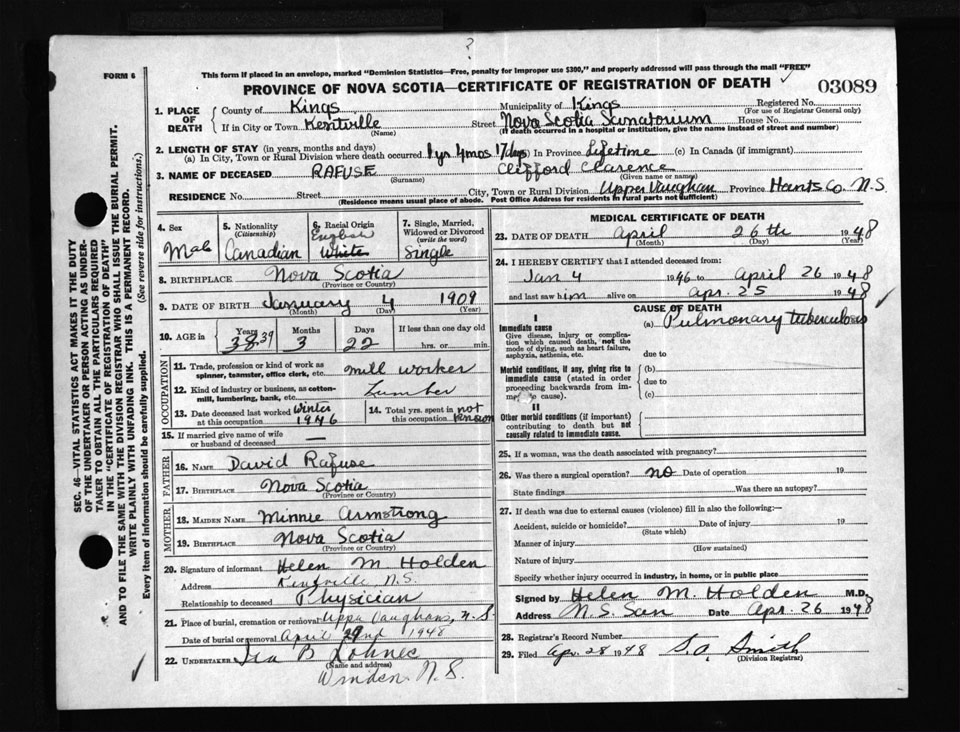 ?
FORM 6
This form if placed in an envelope, marked "Dominion Statistics—Free, penalty for improper use $300," and properly addressed will pass through the mail "FREE"
PROVINCE OF NOVA SCOTIA—CERTIFICATE OF REGISTRATION OF DEATH
03089
1. PLACE OF DEATH
County of Kings Municipality of Kings Registered No.
(For use of Registrar General only)
If in City or Town Kentville Street Nova Scotia Sanatorium House No.
(Name) (If death occurred in a hospital or institution, give the name instead of street and number)
2. LENGTH OF STAY (in years, months and days)
(a) In City, Town or Rural Division where death occurred 1 yr 4 mos 17 days In Province Lifetime (c) In Canada (if immigrant)
3. NAME OF DECEASED RAFUSE Clifford Clarence
(Surname) (Given name or names)
RESIDENCE No. Street City, Town or Rural Division Upper Vaughan Province Hants Co. N.S.
(Residence means usual place of abode. Post Office Address for residents in rural parts not sufficient)
4. Sex
Male
5. Nationality
(Citizenship)
Canadian
6. Racial Origin
English
White
7. Single, Married, Widowed or Divorced
(write the word)
Single
8. BIRTHPLACE Nova Scotia
(Province or Country)
9. DATE OF BIRTH January 4 1909
(Month) (Day) (Year)
10. AGE in Years Months Days If less than one day old
38 39 3 22 hrs. or min.
OCCUPATION
11. Trade, profession or kind of work as spinner, teamster, office clerk, etc. mill worker
12. Kind of industry or business, as cotton-mill, lumbering, bank, etc. Lumber
13. Date deceased last worked at this occupation Winter 1946
14. Total yrs. spent in this occupation not known
15. If married give name of wife or husband of deceased —
FATHER
16. NAME David Rafuse
17. BIRTHPLACE Nova Scotia
(Province or Country)
MOTHER
18. MAIDEN NAME Minnie Armstrong
19. BIRTHPLACE Nova Scotia
(Province or Country)
20. Signature of informant Helen M Holden
Address Kentville N.S.
Relationship to deceased Physician
21. Place of burial, cremation or removal Upper Vaughans, N.S.
Date of burial or removal April 29nd 1948
22. UNDERTAKER Ira B Lohnes
(Name and address)
Windsor N.S.
MEDICAL CERTIFICATE OF DEATH
23. DATE OF DEATH April 26th 1948
(Month) (Day) (Year)
24. I HEREBY CERTIFY that I attended deceased from:
Jan 4 1946 to April 26 1948
and last saw him alive on Apr. 25 1948
CAUSE OF DEATH
I
Immediate cause
Give disease, injury or complication which caused death, not the mode of dying, such as heart failure, asphyxia, asthenia, etc.
(a) Pulmonary tuberculosis
due to
Morbid conditions, if any, giving rise to immediate cause (stated in order proceeding backwards from immediate cause)
(b)
due to
(c)
II
Other morbid conditions (if important) contributing to death but not causally related to immediate cause.
25. If a woman, was the death associated with pregnancy?
26. Was there a surgical operation? no Date of operation 19
State findings Was there an autopsy?
27. If death was due to external causes (violence) fill in also the following:—
Accident, suicide or homicide? Date of injury 19
(State which)
Manner of injury
(How sustained)
Nature of injury
Specify whether injury occurred in industry, in home, or in public place
Signed by Helen M. Holden M.D.
Address N.S. San Date Apr. 26 1948
28. Registrar's Record Number
29. Filed Apr. 28 1948 S.A. Smith
(Division Registrar)
SEC. 46—VITAL STATISTICS ACT MAKES IT THE DUTY
OF THE UNDERTAKER OR PERSON ACTING AS UNDERTAKER TO OBTAIN ALL THE PARTICULARS REQUIRED
IN THE "CERTIFICATE OF REGISTRATION OF DEATH"
AND TO FILE THE SAME WITH THE DIVISION REGISTRAR WHO SHALL ISSUE THE BURIAL PERMIT.
WRITE PLAINLY WITH UNFADING INK. THIS IS A PERMANENT RECORD.
Every item of information should be carefully supplied. (See reverse side for instructions.)